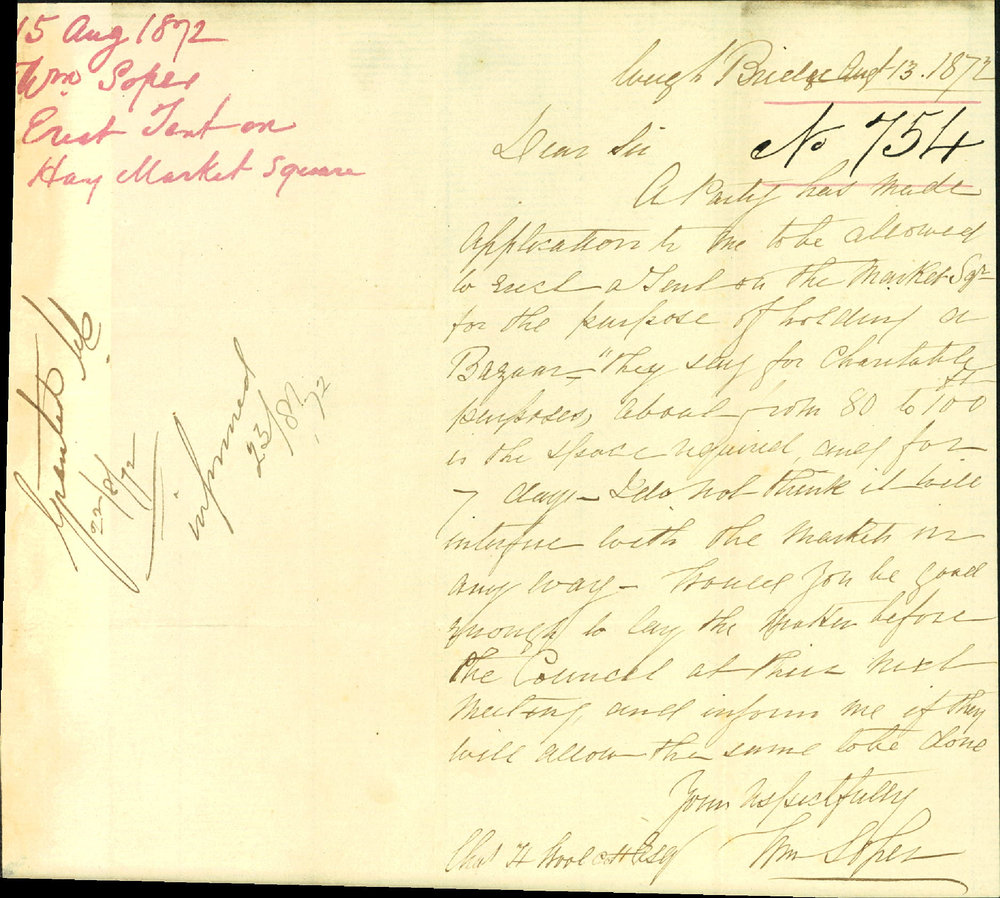 15 Aug 1872
Wm Soper
Erect Tent on
Hay Market Square
Granted
22/8/72
informed
23/8/72
Weigh Bridge Augt 13. 1872
No 754
Dear Sir
A Party has made
Application to me to be allowed
to Erect a Tent on the Market Sqr
for the purpose of holding a
Bazaar — "they say for Charitable
purposes, about from 80 to 100 ft
is the space required, and for
7 days — I do not think it will
interfere with the Markets in
any way — Would you be good
enough to lay the Matter before
the Council at their next
Meeting, and inform me if they
will allow the same to be done
Yours respectfully
Wm Soper
Chas H Woolcott Esq